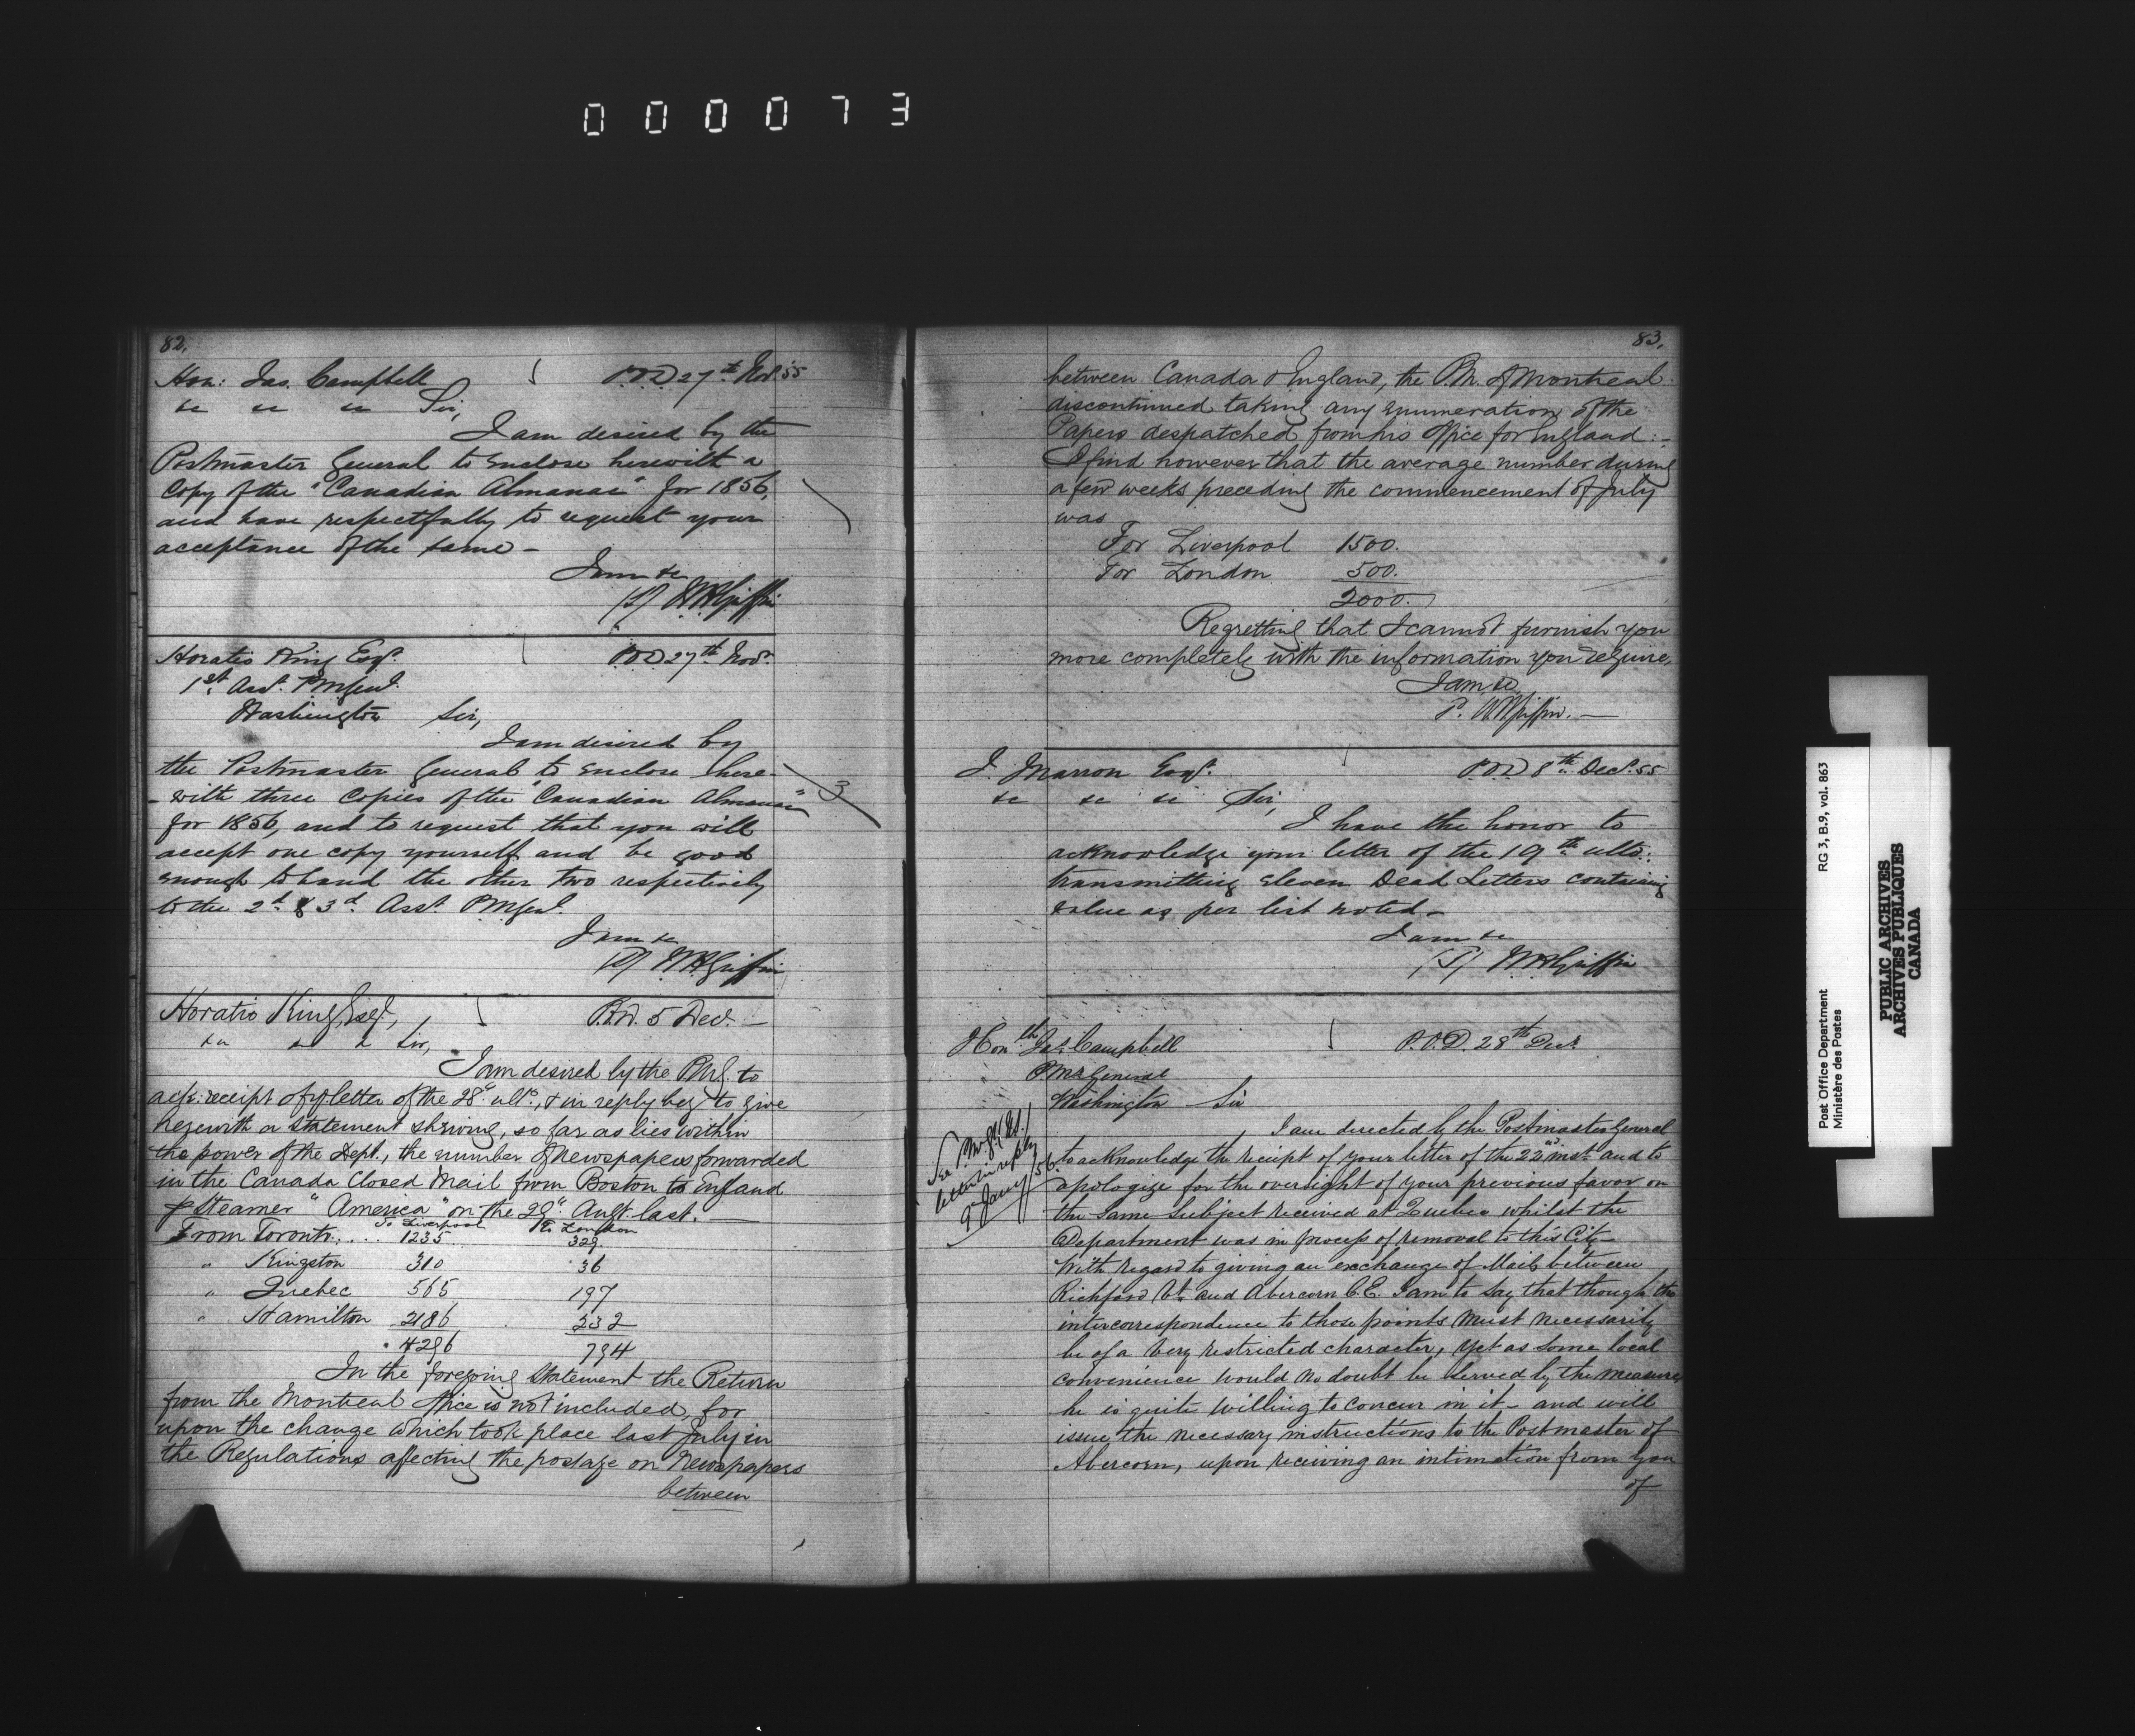 000073
82.
Hon: Jas. Campbell P.O.D 27th Nov. 55
&c &c &c Sir,
I am desired by the
Postmaster General to enclose herewith a
Copy of the "Canadian Almanac" for 1856,
and have respectfully to request your
acceptance of the same -
I am &c
(S) W H Griffin
Horatio King Esqr. P.O.D 27th Nov.
1st Asst. P M Genl.
Washington Sir,
I am desired by
the Postmaster General to enclose here-
- with three Copies of the "Canadian Almanac" 3
for 1856, and to request that you will
accept one copy yourself and be good
enough to hand the other two respectively
to the 2d & 3d Asst. P M Genl.
I am &c
(S) W H Griffin
Horatio King, Esqr., P.O.D. 5 Decr. -
&c &c & Sir,
I am desired by the P M G. to
ack: receipt of yr. letter of the 28" ulto., & in reply beg to give
herewith a statement shewing, so far as lies within
the power of the Dept., the number of newspapers forwarded
in the Canada Closed Mail from Boston to England
p Steamer "America" on the 29" Augt. last. -
To Liverpool To London
From Toronto..... 1235 329
" Kingston 310 36
" Quebec 565 197
" Hamilton 2186 232
4296 794
In the foregoing statement the Return
from the Montreal Office is not included, for
upon the change which took place last July in
the Regulations affecting the postage on Newspapers
between
83.
between Canada & England, the P.M. of Montreal
discontinued taking any enumeration of the
Papers despatched from his Office for England :-
I find however that the average number during
a few weeks preceding the commencement of July
was
For Liverpool 1500.
For London 500.
2000.
Regretting that I cannot furnish you
more completely with the information you require,
I am &c
W H Griffin. -
J. Marron Esqr. P.O.D 8th Decr. 55
&c &c &c Sir,
I have the honor to
acknowledge your letter of the 19th ulto:
transmitting eleven Dead Letters containing
value as per list noted -
I am &c
(S) W H Griffin
Honble Jas. Campbell P.O.D. 28th Decr.
P M r General
Washington Sir
I am directed by the Postmaster General
See P.M. Gl. (U.S.)
letter in reply
9 Jany /56.
to acknowledge the receipt of your letter of the 22nd. inst. and to
apologize for the oversight of your previous favor on
the same subject received at Quebec whilst the
Department was in process of removal to this City
With regard to giving an exchange of Mails between
Richford Vt. and Abercorn C.E. I am to say that though the
intercorrespondence to those points must necessarily
be of a very restricted character, yet as some local
convenience would no doubt be served by the measure
he is quite willing to concur in it - and will
issue the necessary instructions to the Postmaster of
Abercorn, upon receiving an intimation from you
of
Post Office Department RG 3, B.9, vol. 863
Ministère des Postes
PUBLIC ARCHIVES
ARCHIVES PUBLIQUES
CANADA